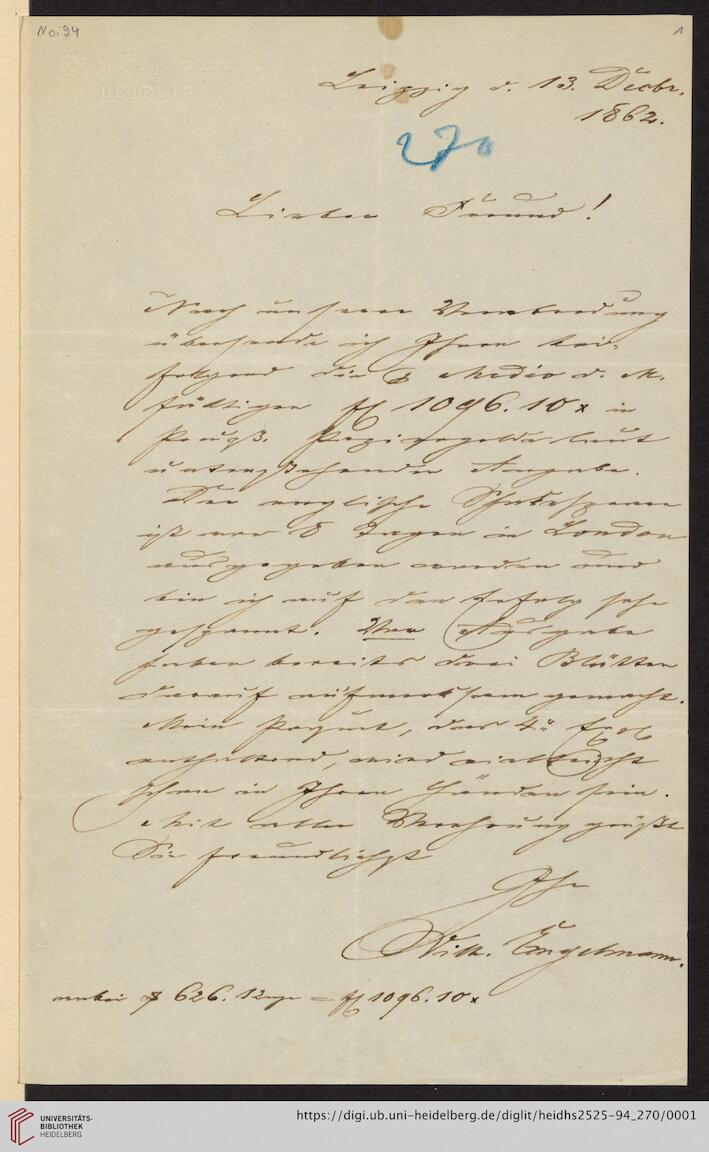 No: 94
1
LEIPZIG
Leipzig d. 13. Decbr.
1862.
270
Lieber Freund!
Nach unserer Verabredung
übersende ich Ihnen bei-
folgend die Medio d. M.
fälligen fl 1096. 10x in
Preuß. Papiergelde laut
untenstehender Angabe.
Der englische Shakespeare
ist vor 8 Tagen in London
ausgegeben worden und
bin ich auf den Erfolg sehr
gespannt. Vor Ausgabe
haben bereits drei Blätter
darauf aufmerksam gemacht.
Mein Paquet, das
enthaltend, wird vielleicht
schon in Ihren Händen sein.
Mit aller Verehrung grüßt
Sie freundlichst
Ihr
Wilh. Engelmann.
626. = fl 1096. 10x
UNIVERSITÄTS-
BIBLIOTHEK
HEIDELBERG
https://digi.ub.uni-heidelberg.de/diglit/heidhs2525-94_270/0001